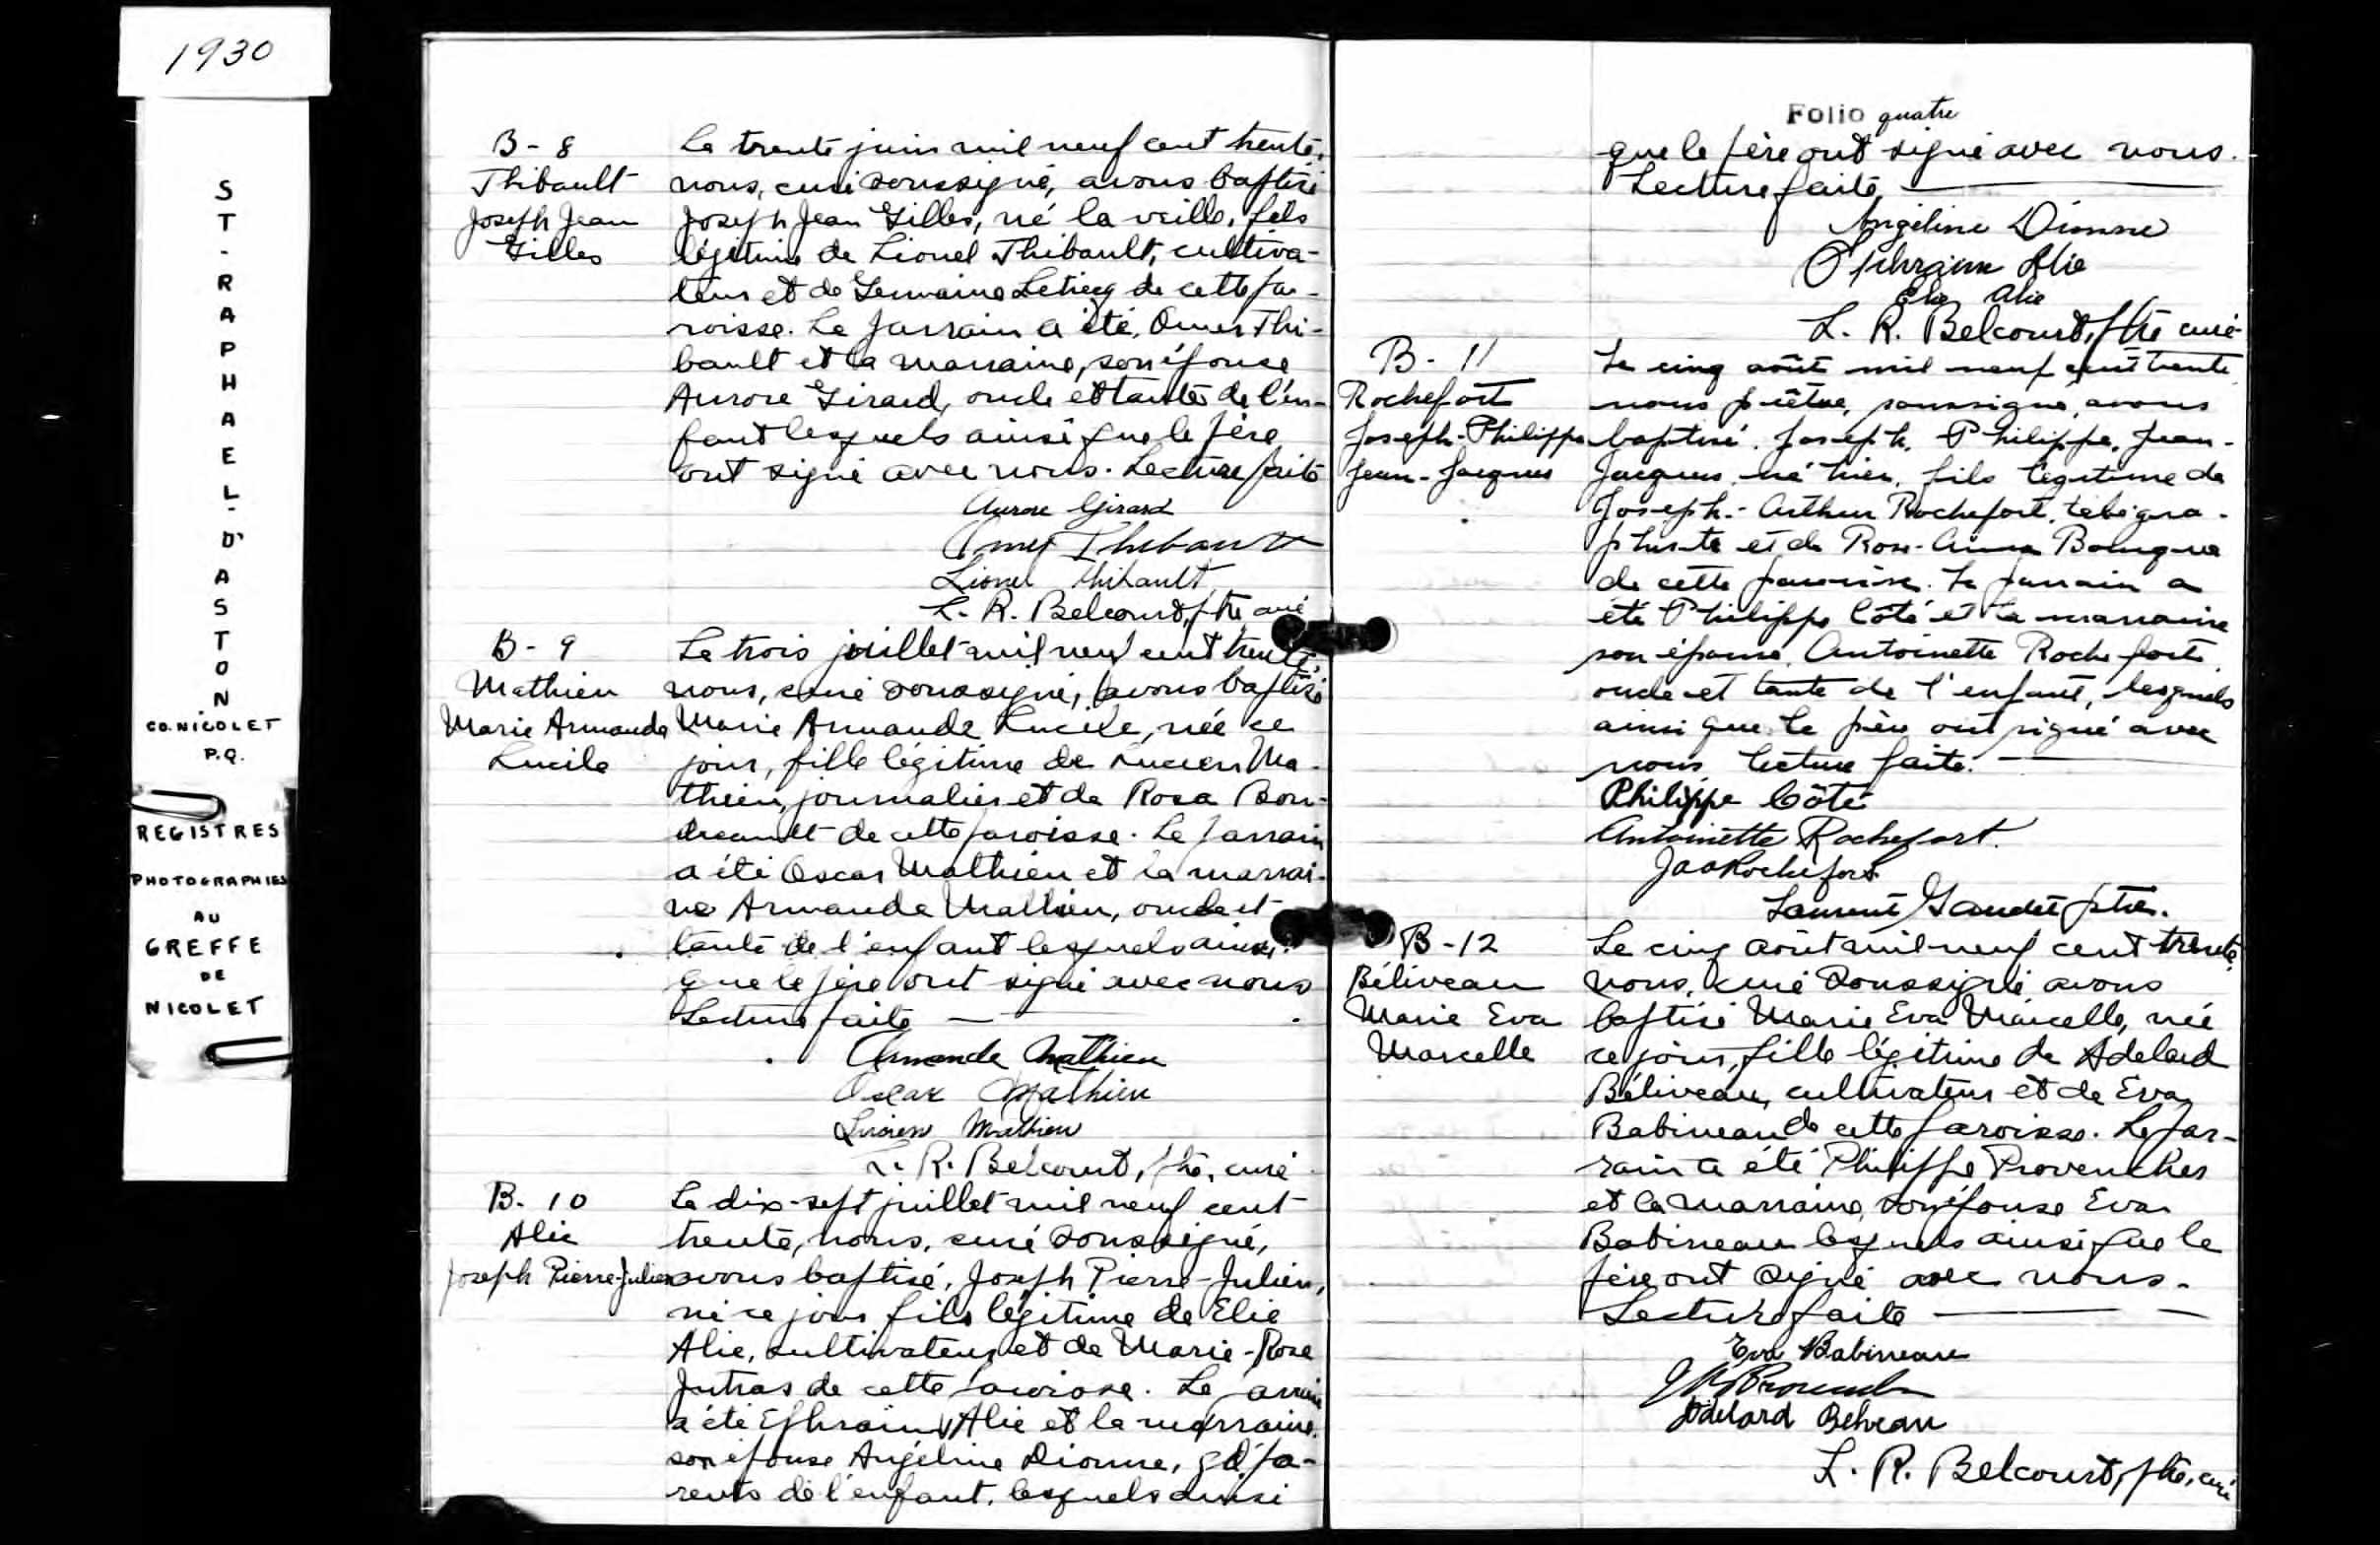 1930
ST-RAPHAEL-D'ASTON
CO. NICOLET
P.Q.
REGISTRES
PHOTOGRAPHIES
AU
GREFFE
DE
NICOLET
B-8
Thibault
Joseph Jean
Gilles
Le trente juin mil neuf cent trente,
nous, curé soussigné, avons baptisé
Joseph Jean Gilles, né la veille, fils
légitime de Lionel Thibault, cultiva-
teur et de Germaine de cette pa-
roisse. Le parrain a été, Omer Thi-
bault et la marraine, son épouse
Aurore Girard, oncle et tante de l'en-
fant lesquels ainsi que le père
ont signé avec nous. Lecture faite
Aurore Girard
Omer Thibault
Lionel Thibault
L. R. Belcourt, ptre curé
B-9
Mathieu
Marie Armande
Lucile
Le trois juillet mil neuf cent trente,
nous, curé soussigné, avons baptisé
Marie Armande Lucile, née ce
jour, fille légitime de Lucien Ma-
thieu, journalier et de Rosa Bou-
dreault de cette paroisse. Le parrain
a été Oscar Mathieu et la marrai-
ne Armande Mathieu, oncle et
tante de l'enfant lesquels ainsi
que le père ont signé avec nous
Lecture faite —
Armande Mathieu
Oscar Mathieu
Lucien Mathieu
L. R. Belcourt, ptre, curé
B. 10
Alie
Joseph Pierre-Julien
Le dix-sept juillet mil neuf cent
trente, nous, curé soussigné,
avons baptisé, Joseph Pierre-Julien,
né ce jour fils légitime de Elie
Alie, cultivateur et de Marie-Rose
Jutras de cette paroisse. Le parrain
a été Ephraim Alie et la marraine
son épouse Angéline Dionne, gd. pa-
rents de l'enfant, lesquels ainsi
Folio quatre
que le père ont signé avec nous.
Lecture faite —
Angéline Dionne
Ephraim Alie
Elie Alie
L. R. Belcourt, ptre curé
B-11
Rochefort
Joseph-Philippe
Jean-Jacques
Le cinq août mil neuf cent trente
nous prêtre, soussigné, avons
baptisé, Joseph, Philippe, Jean-
Jacques, né hier, fils légitime de
Joseph-Arthur Rochefort, télégra-
phiste et de Rose-Anna Bourque
de cette paroisse. Le parrain a
été Philippe Côté et la marraine
son épouse, Antoinette Rochefort,
oncle et tante de l'enfant, lesquels
ainsi que le père ont signé avec
nous lecture faite. —
Philippe Côté
Antoinette Rochefort.
Jos A Rochefort
Laurent Gaudet ptre.
B-12
Béliveau
Marie Eva
Marcelle
Le cinq août mil neuf cent trente,
nous, curé soussigné avons
baptisé Marie Eva Marcelle, née
ce jour, fille légitime de Adelard
Béliveau, cultivateur et de Eva
Babineau de cette paroisse. Le par-
rain a été Philippe Provencher
et la marraine, son épouse Eva
Babineau lesquels ainsi que le
père ont signé avec nous.
Lecture faite —
Eva Babineau
Adelard Beliveau
L. R. Belcourt, ptre, curé